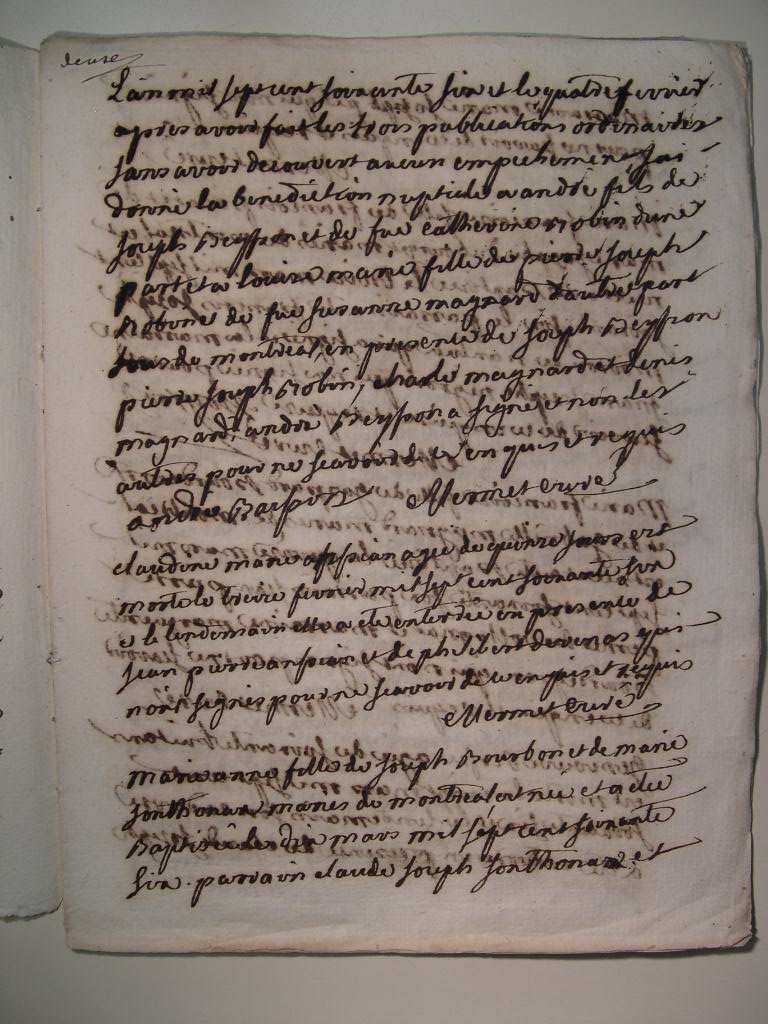 deuxe
L'an mil sept cent soixante six et le quatre fevrier
apres avoir fait les trois publications ordinaires
sans avoir decouvert aucun empechement j'ai
donné la benediction nuptiale a andré fils de
Joseph Beysson et de fue catherine Robin dune
part et a louise marie fille de pierre Joseph
Robin et de fue susanne magnard d'autre part
tous de montreal, en presence de Joseph Beysson
pierre Joseph Robin, charle magnard et denis
magnard, andré Beysson a signé et non les
autres pour ne scavoir de ce enquis et requis
andre Baison Mermet curé
claudine marie anpian agée de quinze jours est
morte le treize fevrier mil sept cent soixante six
et le lendemain elle a eté enterrée en presence de
Jean pierre anpian et de philibert devenas qui
n'ont signés pour ne scavoir de ce enquis et requis
Mermet curé
marie anne fille de Joseph Bourbon et de marie
Jonthonax mariés de montreal est née et a eté
Baptisée le dix mars mil sept cent soixante
six. parrain claude Joseph Jonthonax et